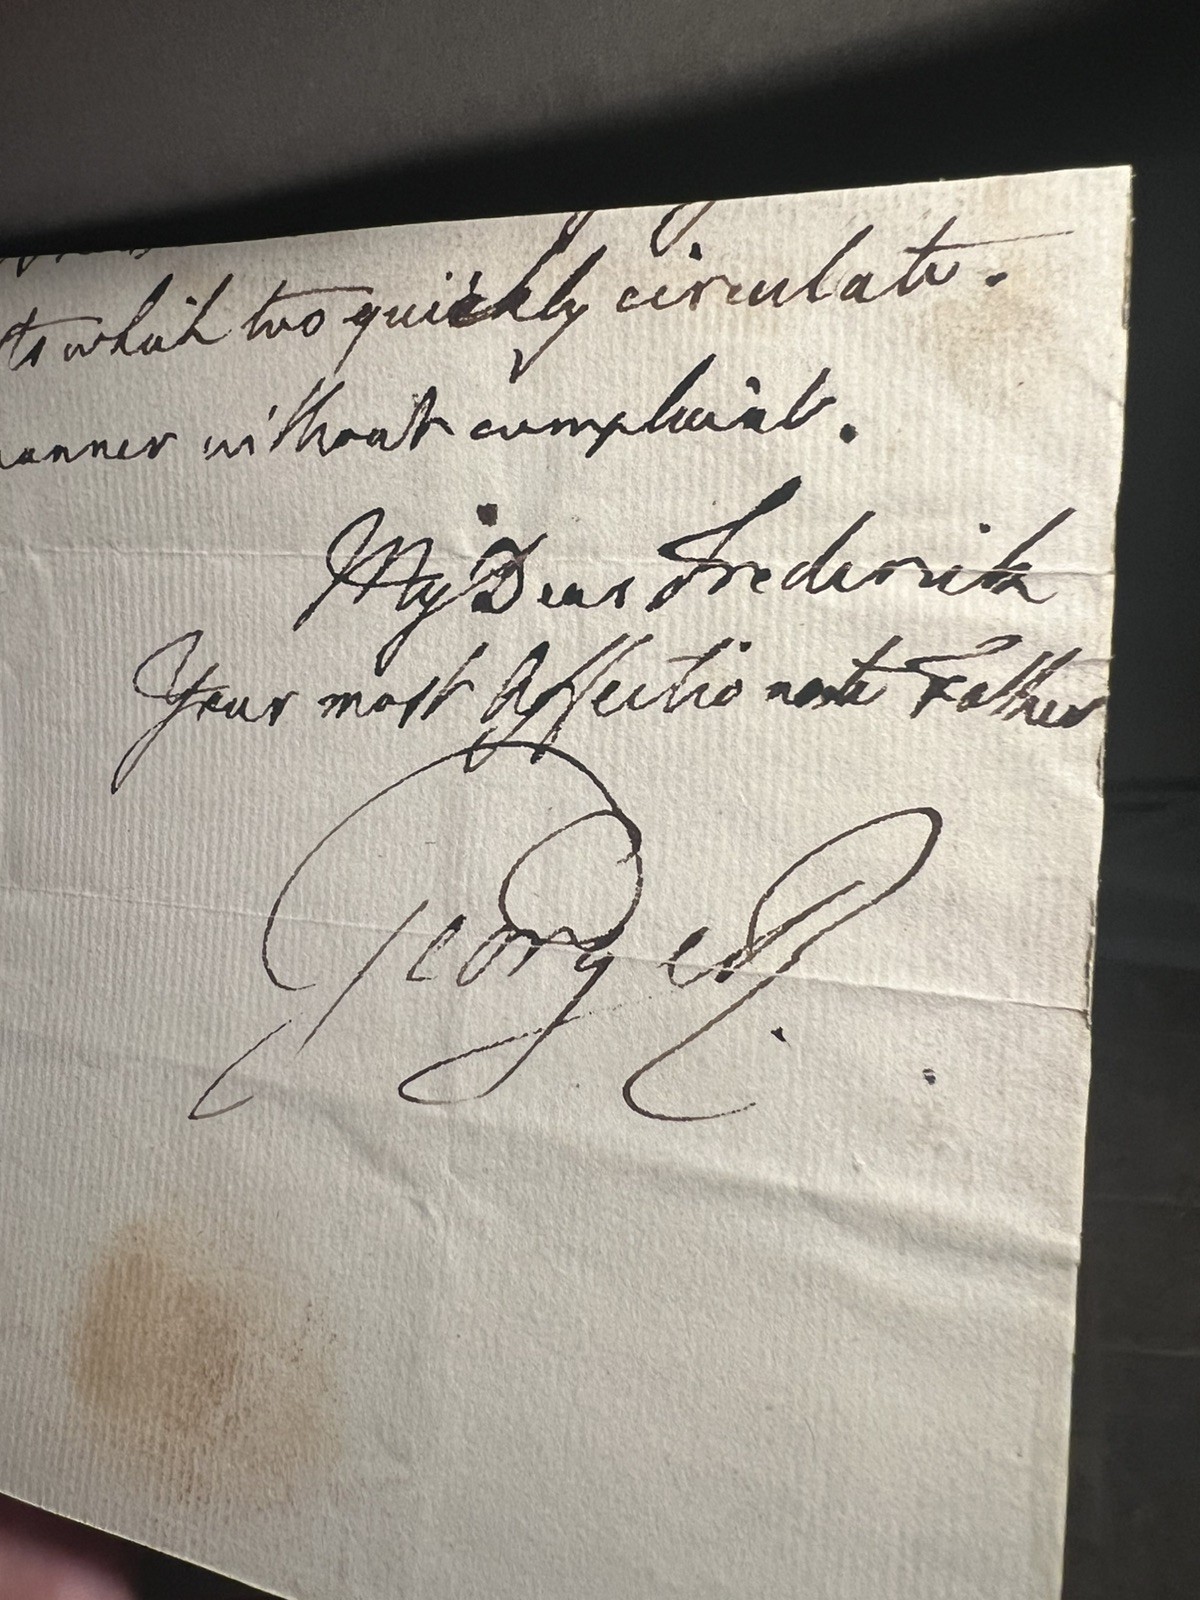 ts which two quickly circulate.
anner without complaint.
My Dear Frederick
Your most Affectionate Father
George R.